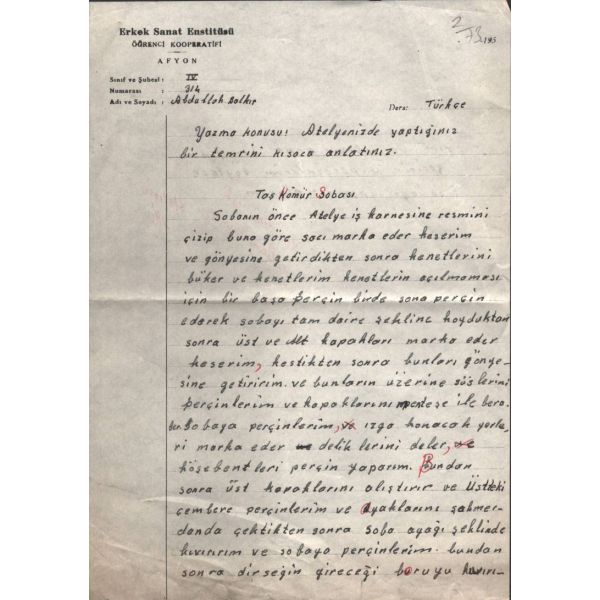 Erkek Sanat Enstitüsü
ÖĞRENCİ KOOPERATİFİ
AFYON
Sınıf ve Şubesi : IV
Numarası : 314
Adı ve Soyadı : Abdullah
2/ 195
Ders: Türkçe
Yazma konusu! Atelyenizde yaptığınız
bir temrini kısaca anlatınız.
Taş Kömür Sobası
Sobanın önce Atelye iş karnesine resmini
çizip buna göre sacı marka eder keserim
ve gönyesine getirdikten sonra kenetlerini
büker ve kenetlerim kenetlerin açılmaması
için bir başa perçin birde sona perçin
ederek sobayı tam daire şekline koyduktan
sonra üst ve Alt kapakları marka eder
keserim, kestikten sonra bunları gönye-
sine getiririm. ve bunların üzerine süslerini
perçinlerim ve kapaklarını menteşe ile bera-
ber Sobaya perçinlerim, ve ızga konacak yerle-
ri marka eder ve deliklerini deler, ve
köşebentleri perçin yaparım. Bundan
sonra üst kapaklarını alıştırır ve Üstteki
çembere perçinlerim ve Ayaklarını şahmer-
danda çektikten sonra soba ayağı şeklinde
kıvırırım ve sobaya perçinlerim. bundan
sonra dirseğin gireceği boruyu kıvırı-